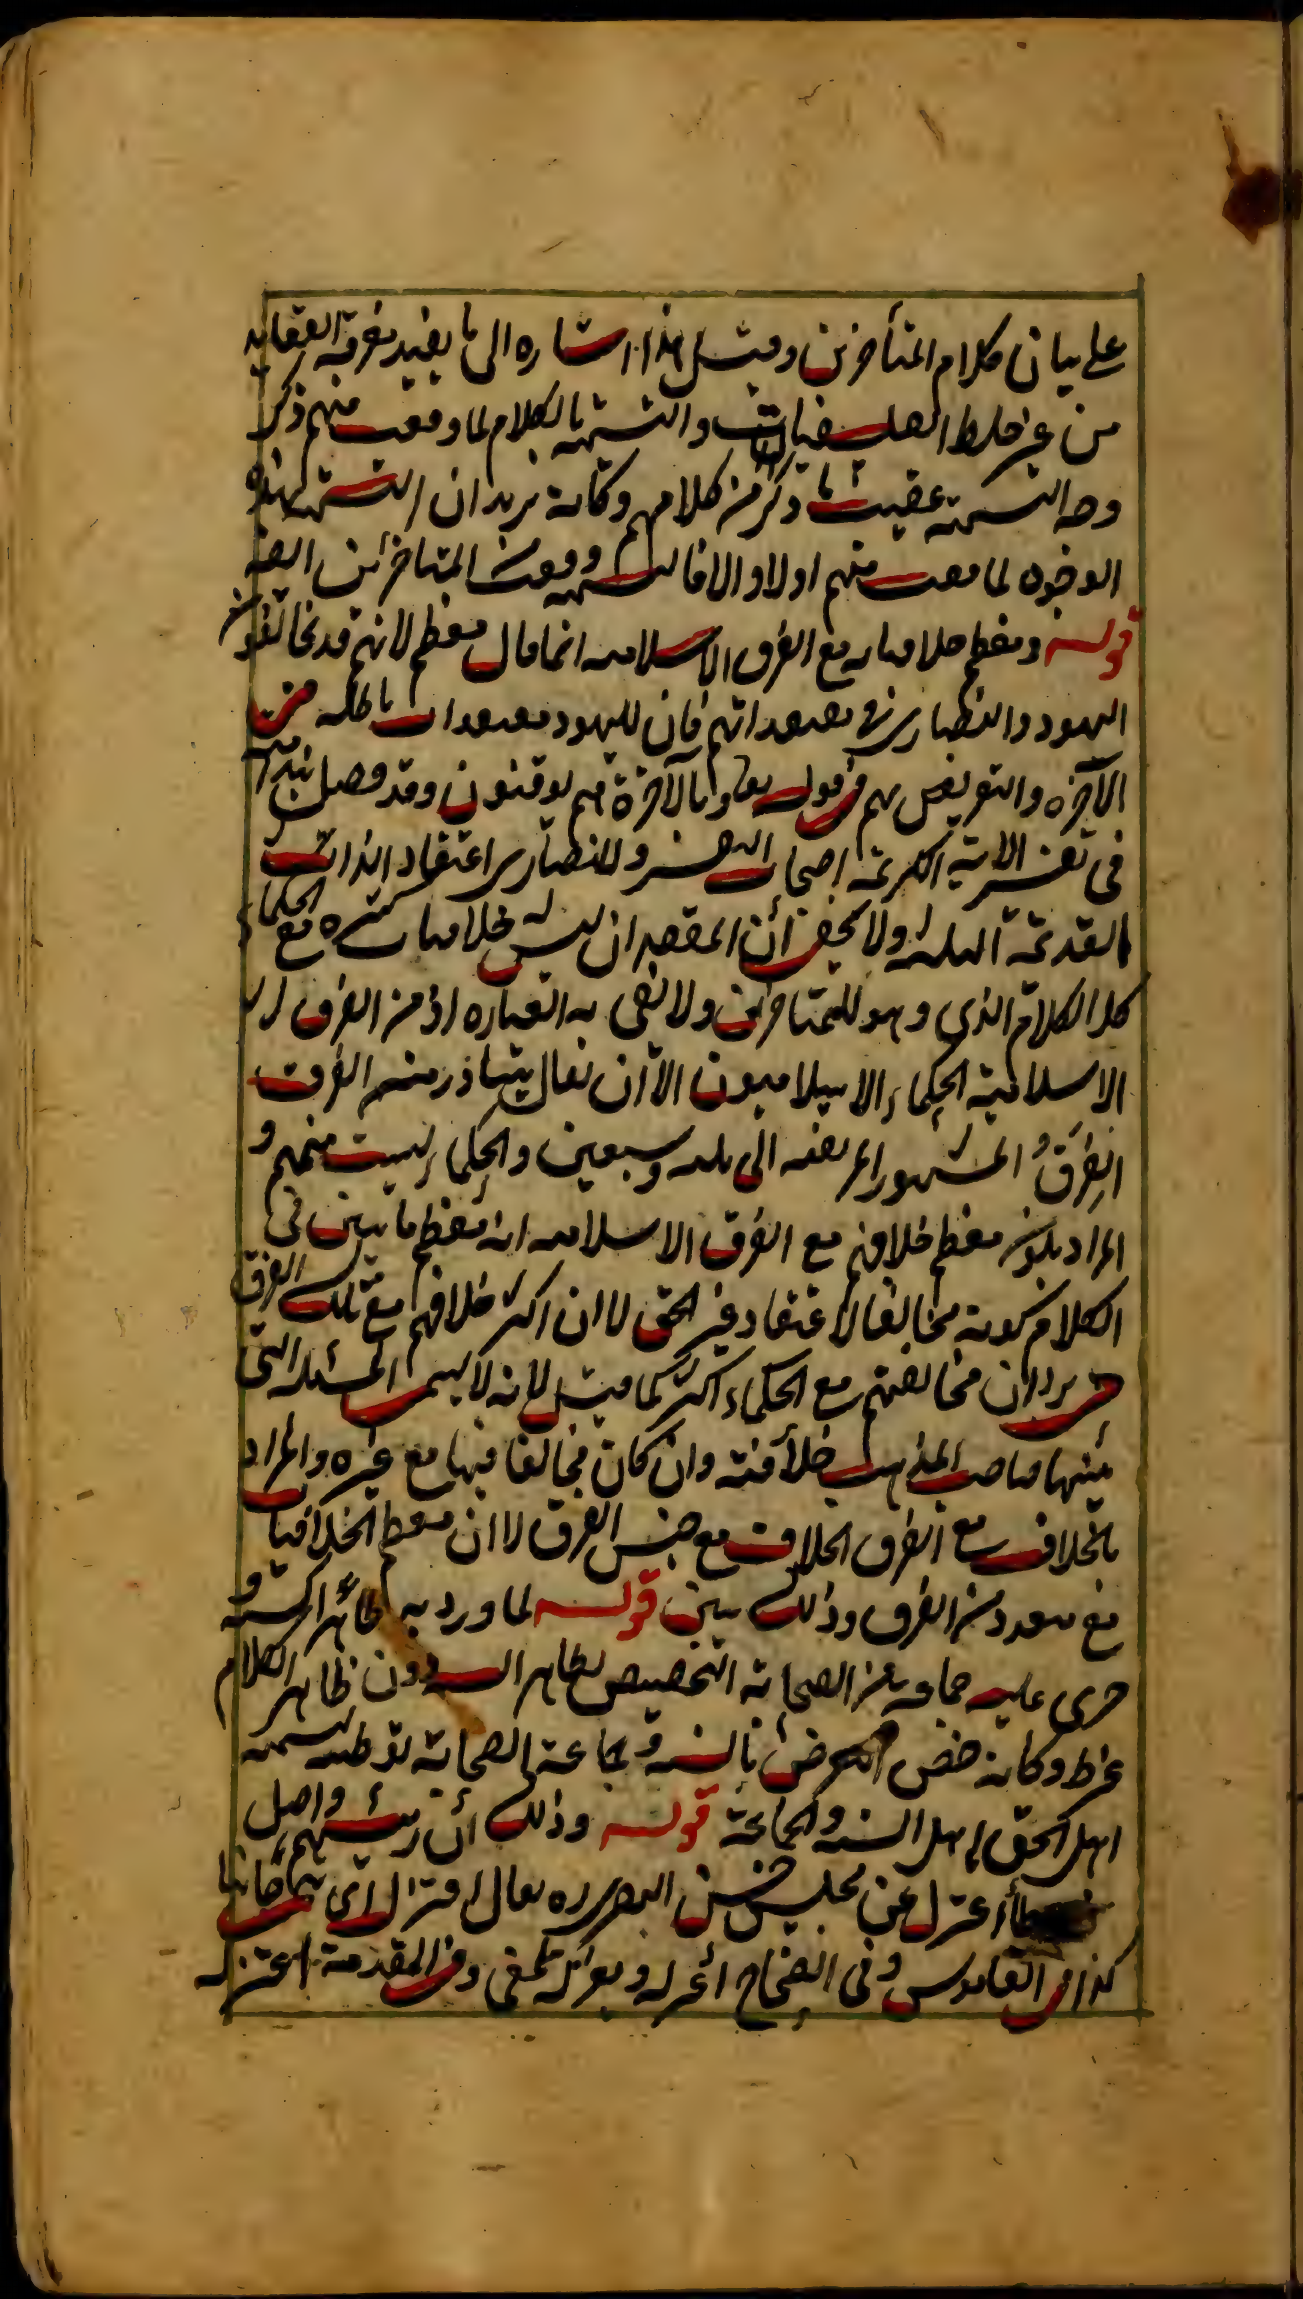 على بيان كلام المتأخرين وقيل هذا اشاره الى ما يفيد معرفة العقايد
من غير خلط الفلسفيات والتسمية بالكلام لما وقعت منهم ذكر
وجه التسمية عقيب ما ذكر من كلامهم وكانه يريد ان التسمية بهذه
الوجوه لما وقعت منهم اولا والا فالتسمية وقعت من المتاخرين ايضا
قوله ومعظم خلافياته مع الفرق الاسلاميه انما قال معظم لانهم قد يخالفون
اليهود والنصارى في معتقداتهم فان لليهود معتقدات باطله في
الآخره والتعريض بهم في قوله تعا وبالآخرة هم يوقنون وقد فصل
في تفسير الاية الكريمة اصحاب التفسير وللنصارى اعتقاد الذوات
القديمة الثلثة ولا يخفى أن المقصد ان ليس له خلافيات كثيره مع الحكماء
كالكلام الذي وهو للمتاخرين ولا تفى به العباره اذ من الفرق
الاسلامية الحكماء الاسلاميون الا أن يقال يتبادر من الفرق
الفِرَقُ المشهورا لمرتقيه الى ثلثه وسبعين والحكماء ليست منهم و
المراد بكون معظم خلافهم مع الفرق الاسلاميه انه معظم ما يبين في
الكلام كونه مخالفا لاعتقاد غير الحق لا ان اكثر خلافهم مع تلك الفرق
حتى يرد ان مخالفتهم مع الحكماء اكثر كما قيل لانه لا يسمى المسئله التي
يبينها صاحب المذهب خلافية وان كان مخالفا فيها مع غيره والمراد
بالخلاف مع الفرق الخلاف مع جنس الفرق لا ان معظم الخلافيات
مع متعدد من الفرق وذلك بين قوله لما ورد به ظاهر السنة و
جرى عليه جماعة من الصحابة التخصيص بظاهر السنة دون ظاهر الكلام
وكانه خص التعرض بالسنه وجماعة الصحابة توطئه لتسميه
اهل الحق باهل السنه والجماعة قوله وذلك أن رئيسهم واصل
بن عطأ اعتزل عن مجلس حسن البصرى ره يقال اعتزل اى تنحى جانبا
كذا في القاموس وفي الصحاح اعتزله وتعزله بمعنى وفي المقدمة اعتزله